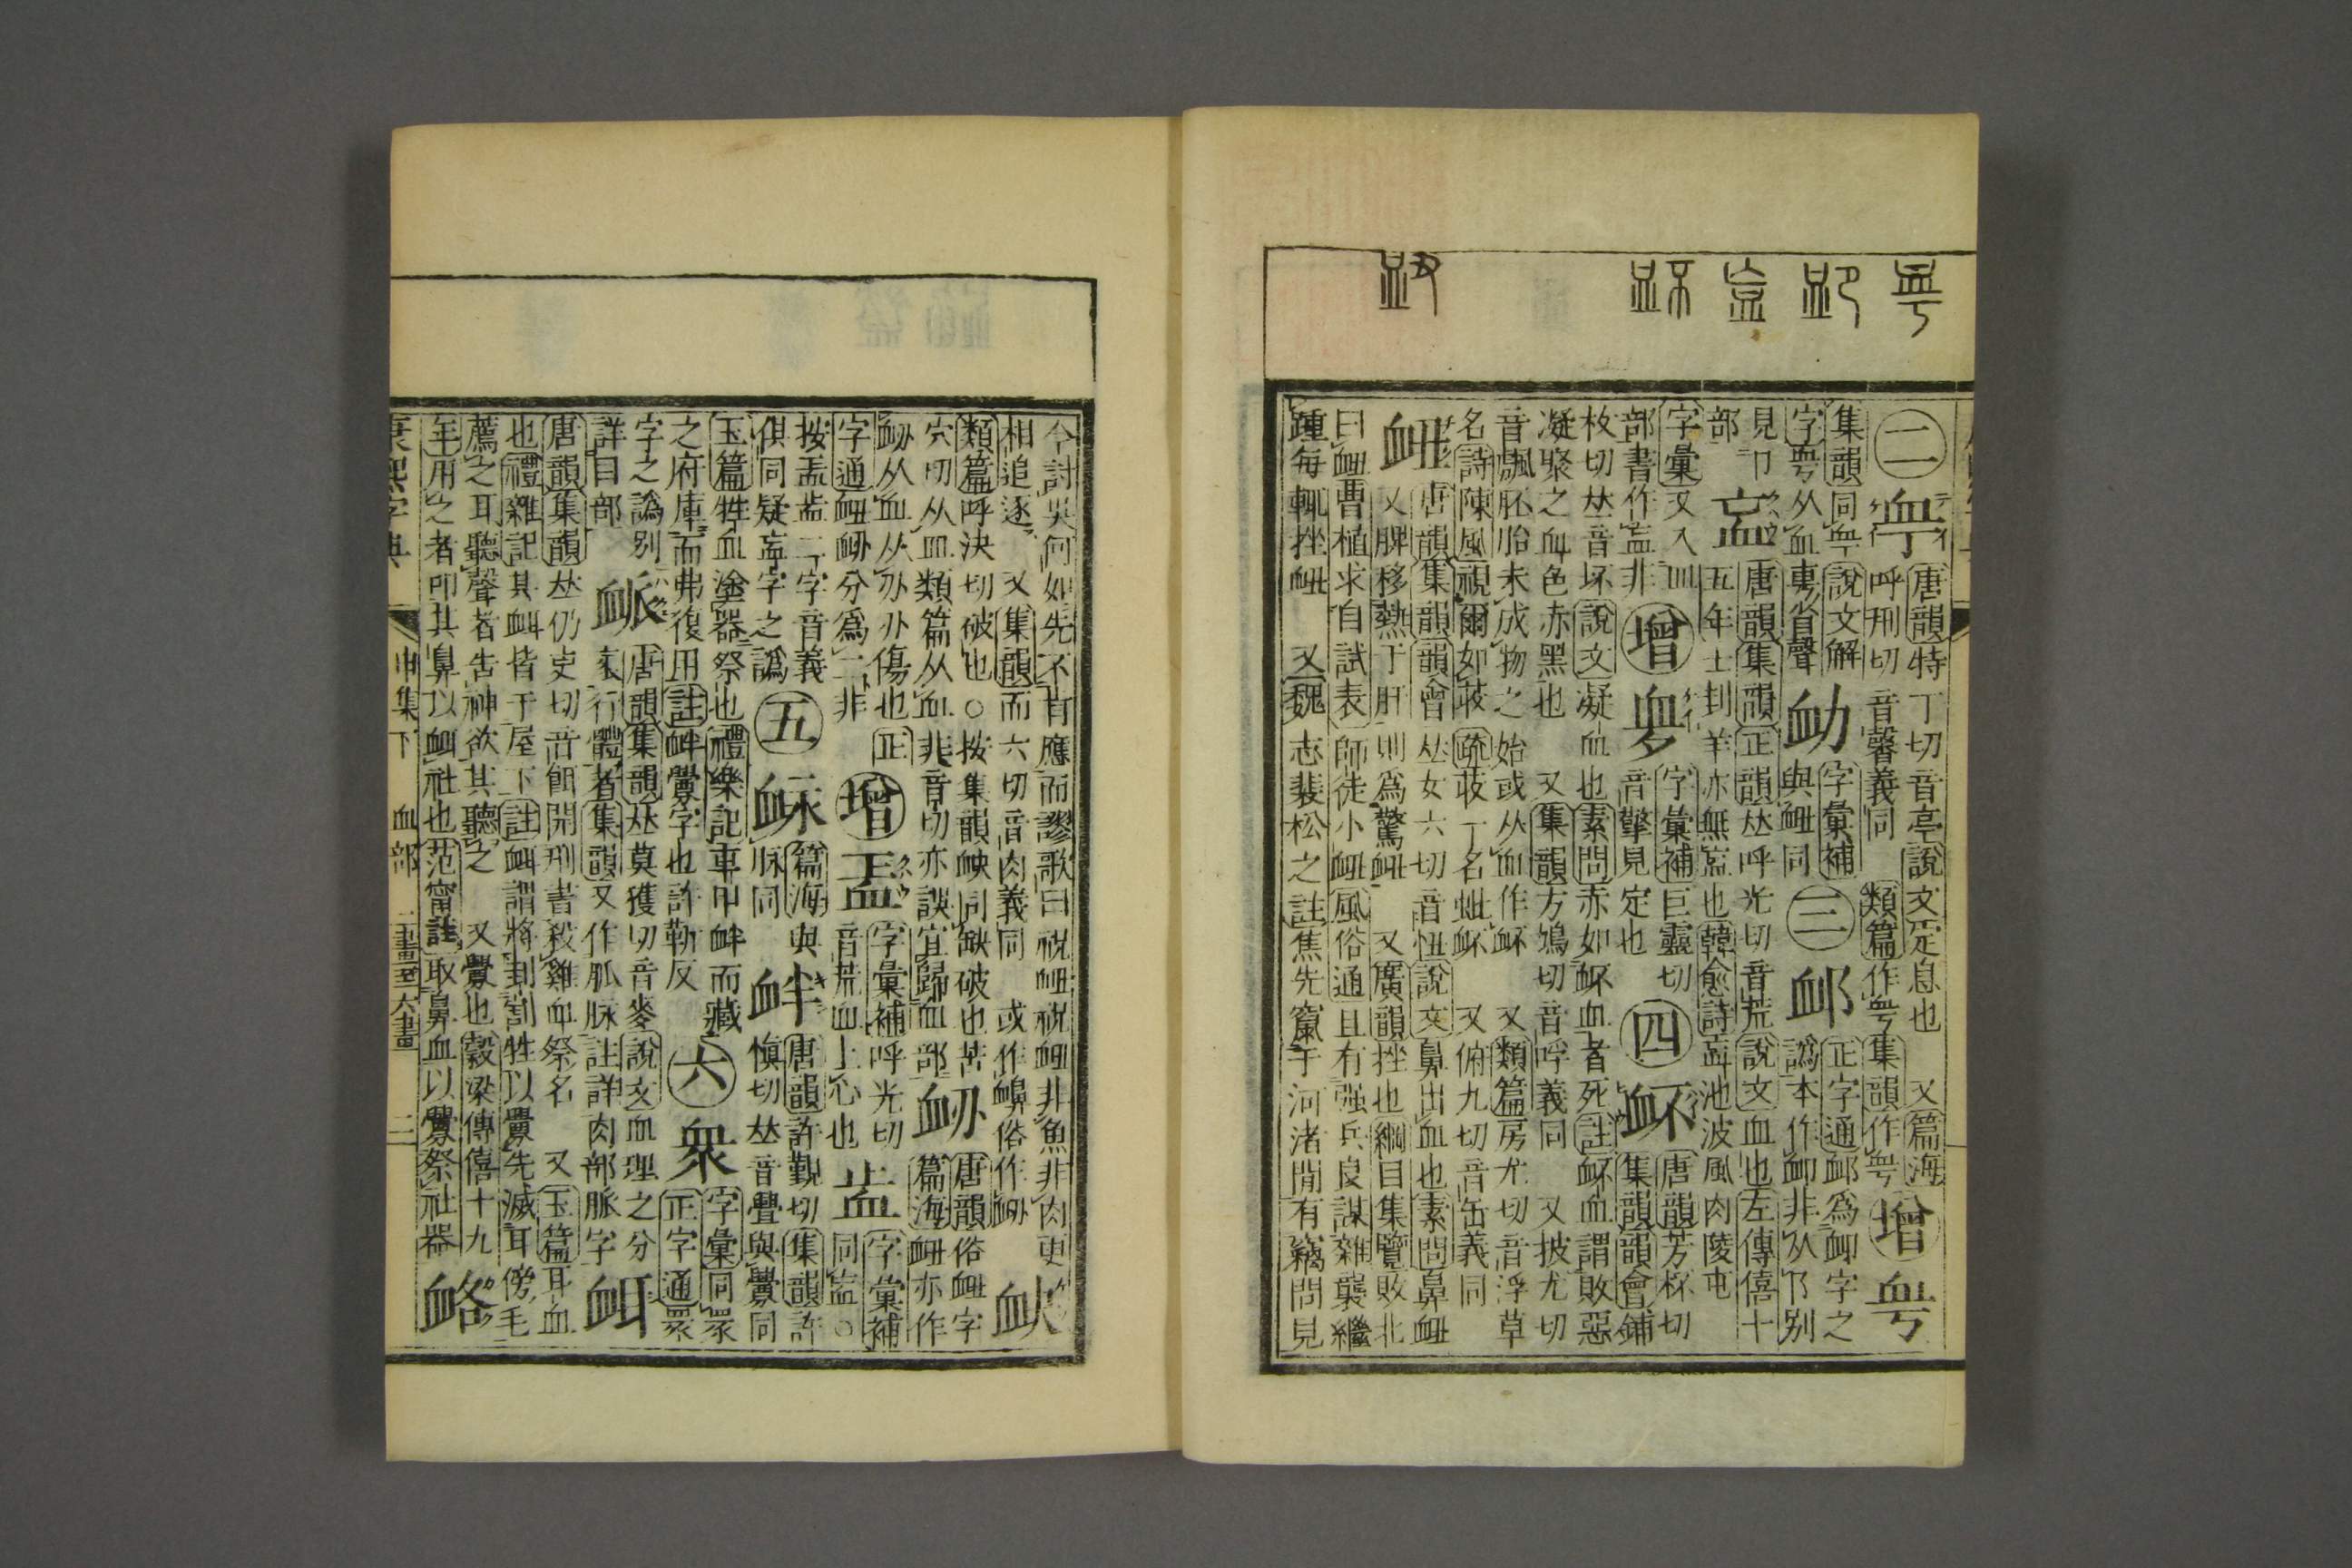 二
𧖬
唐韻特丁切音亭說文定息也 又篇海
呼刑切音馨義同 類篇作𧖭集韻作𧖭
增
𧖭
集韻同𧖬說文解
字𧖭从血甹省聲
䘐
字彙補
與衄同
三
衈
正字通䘏爲卹字之
譌本作卹非从卩別
見卩
部
衁
唐韻集韻正韻𠀤呼光切音荒說文血也左傳僖十
五年士刲羊亦無衁也韓愈詩衁池波風肉陵屯
字彙又入皿
部書作𥁃非
增
𧖰
字彙補巨靈切
音擎見定也
四
衃
唐韻芳杯切
集韻韻會鋪
枚切𠀤音坏說文凝血也素問赤如衃血者死註衃血謂敗惡
凝聚之血色赤黑也 又集韻方鳩切音呼義同 又披尤切
音䬌胚胎未成物之始或从血作衃 又類篇房尤切音浮草
名詩陳風視爾如荍疏荍一名蚍衃 又俯九切音缶義同
衄
唐韻集韻韻會𠀤女六切音忸說文鼻出血也素問鼻衄
又脾移熱于肝則爲驚衄 又廣韻挫也綱目集覽敗北
曰衄曹植求自試表師徒小衄風俗通且有强兵良謀雜襲繼
踵每輒挫衄 又魏志裴松之註焦先竄于河渚閒有竊問見
今討吳何如先不肯應而謬歌曰祝衄祝衄非魚非肉更
相追逐 又集韻而六切音肉義同 或作䶊俗作䘐
𧖺
類篇呼決切破也○按集韻䘑同缺破也苦
穴切从血類篇从血非音切亦誤宜歸血部
䘐
唐韻俗衄字
篇海衄亦作
䘐从血从刅刅傷也正
字通衄䘐分爲二非
增
衋
字彙補呼光切
音荒血上心也
𧖴
字彙補
同衁○
按𥁃𧖴二字音義
俱同疑衁字之譌
五
䘑
篇海與
脉同
衅
唐韻許覲切集韻許
愼切𠀤音舋與釁同
玉篇牲血塗器祭也禮樂記車甲衅而藏
之府庫而弗復用註衅釁字也許靳反
六
衆
字彙同眾
正字通眾
字之譌別
詳目部
衇
唐韻集韻𠀤莫獲切音麥說文血理之分
衺行體者集韻又作脈脉註詳肉部脈字
衈
唐韻集韻𠀤仍吏切音餌開刑書殺雞血祭名 又玉篇耳血
也禮雜記其衈皆于屋下註衈謂將刲割牲以釁先滅耳傍毛
薦之耳聽聲者告神欲其聽之 又釁也穀梁傳僖十九
年用之者叩其鼻以衈社也范甯註取鼻血以釁祭社器
䘔
康熙字典
申集下 血部 二畫至六畫 二